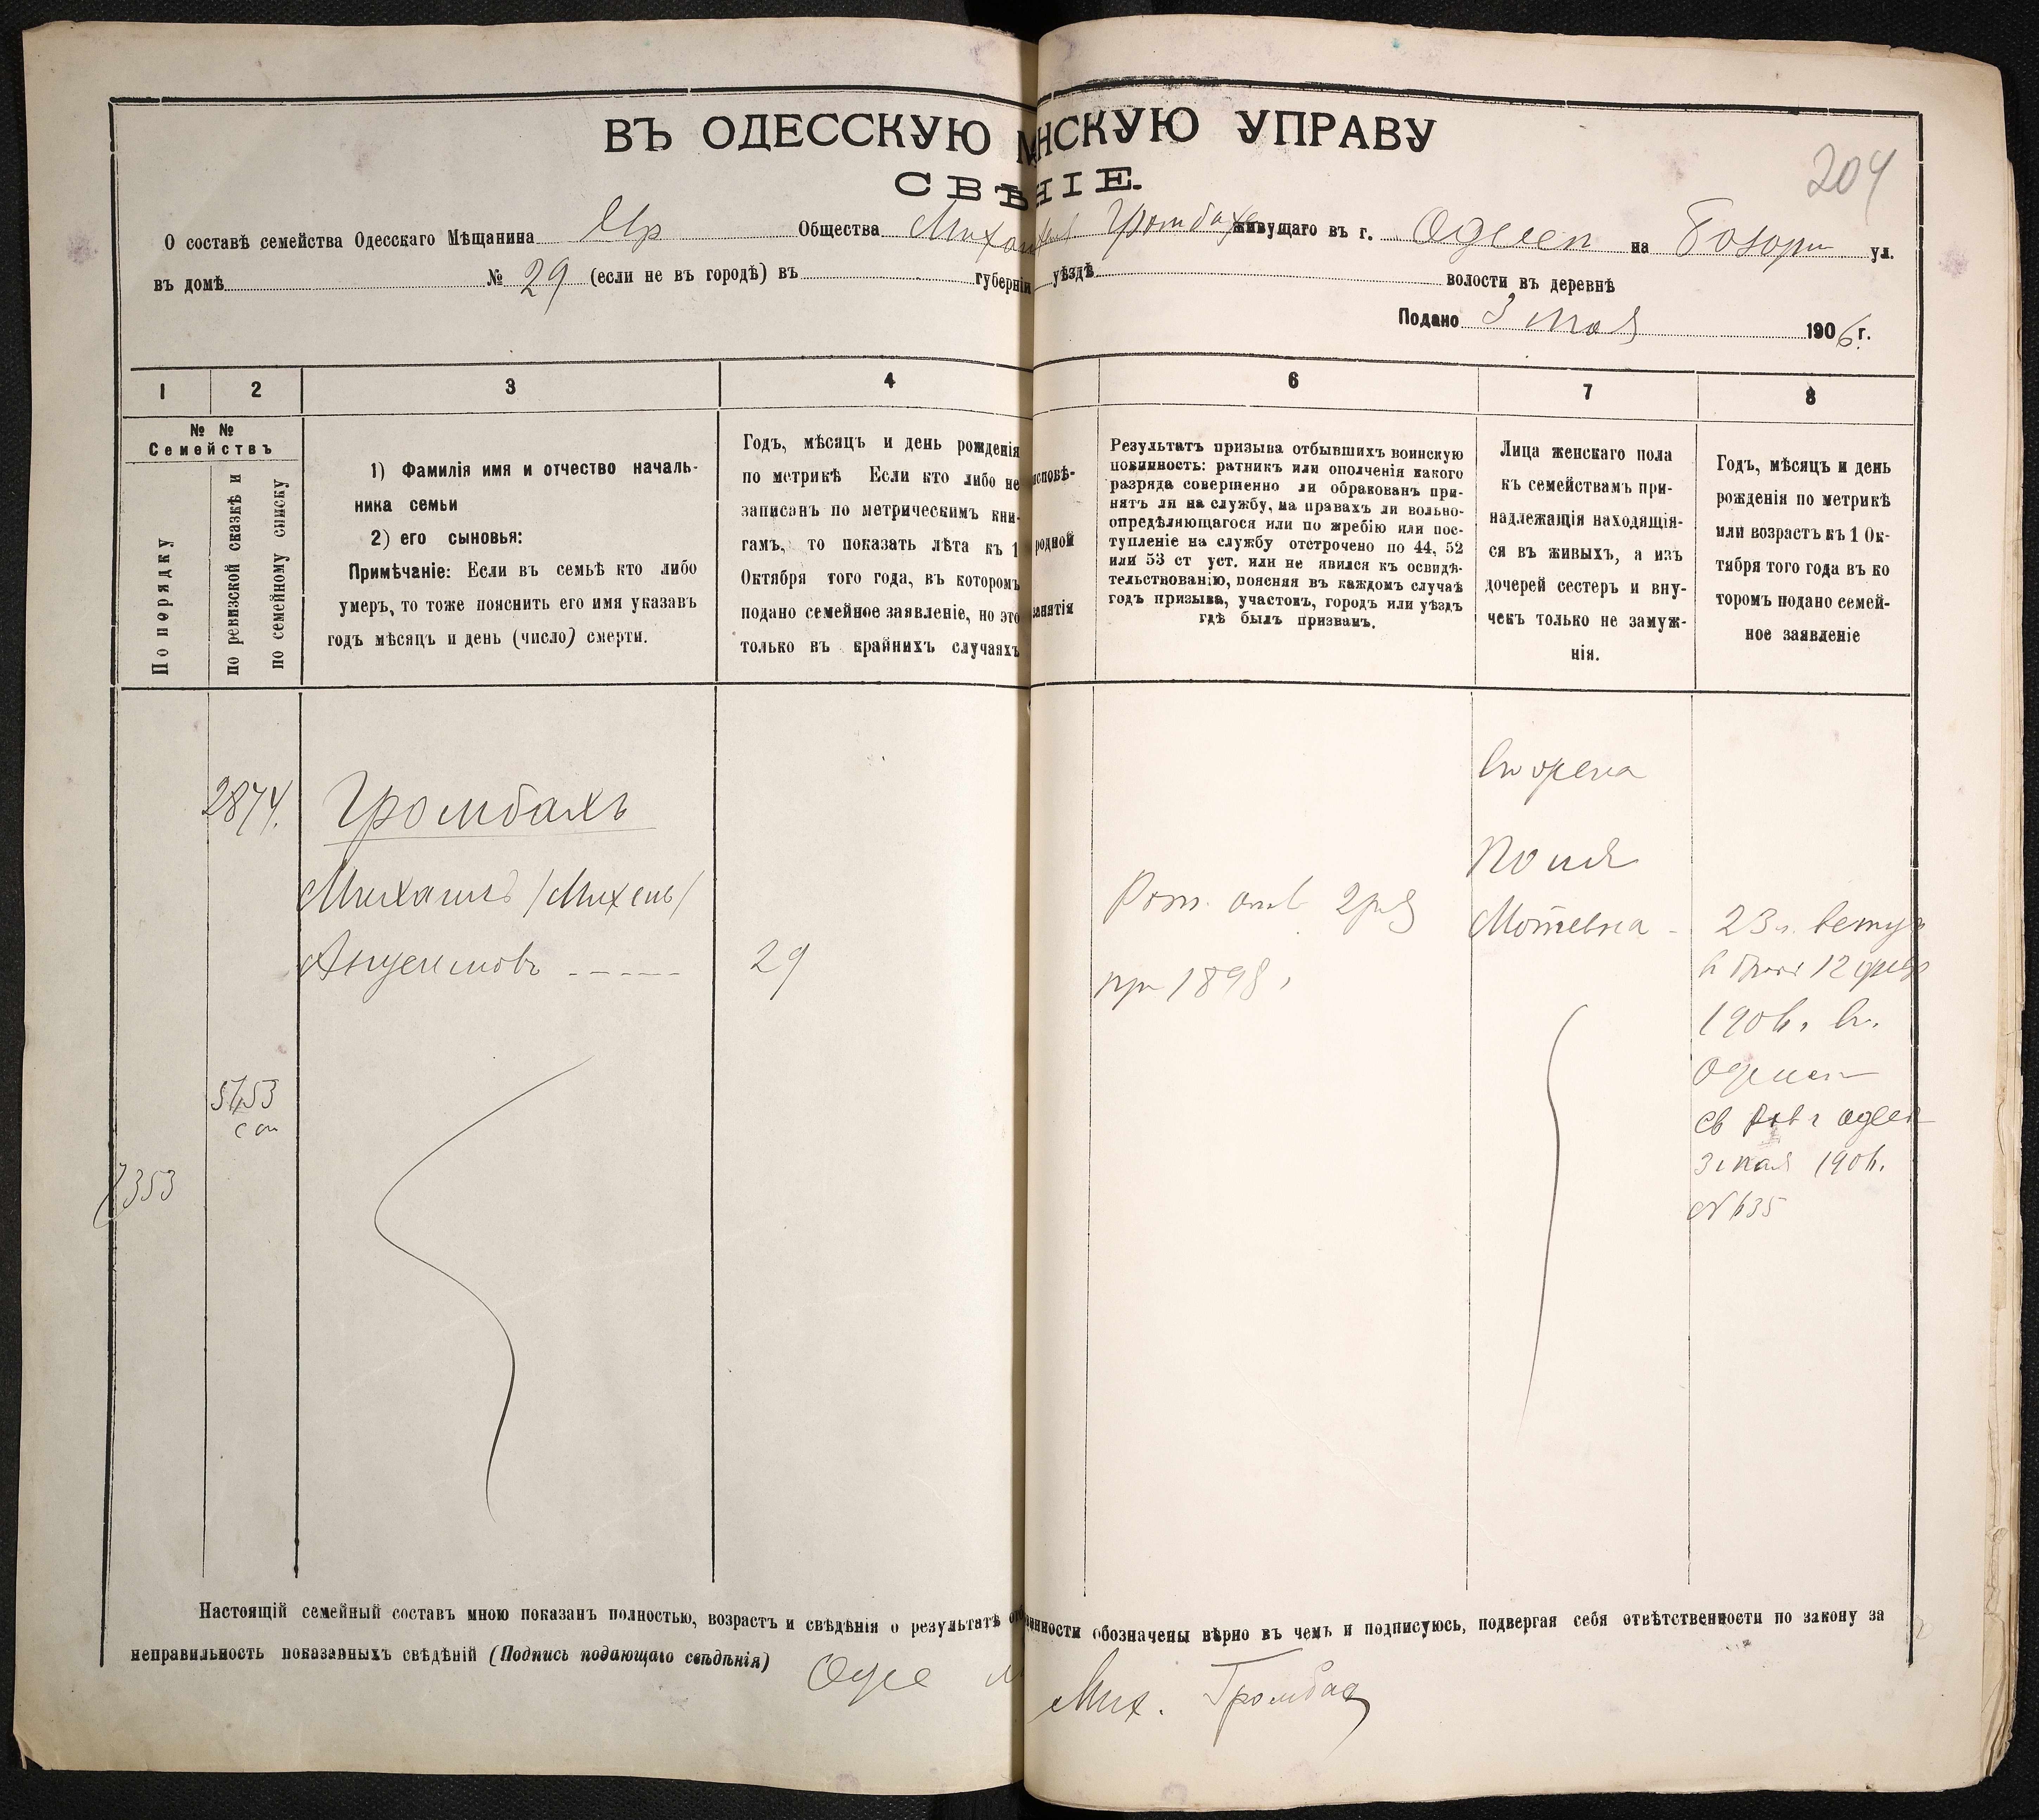 ВЪ ОДЕССКУЮ М НСКУЮ УПРАВУ
СВѢ НІЕ.
204
О составѣ семейства Одесскаго Мѣщанина Общества Михаила Громбахъ живущаго въ г. Одессѣ на ул.
въ домѣ № 29 (если не въ городѣ) въ губерніи уѣздѣ волости въ деревнѣ
Подано 3 мая 1906 г.
1 2 3 4 6 7 8
№ № Семействъ
По порядку
по ревизской сказкѣ и
по семейному списку
1) Фамилія имя и отчество началь-
ника семьи
2) его сыновья:
Примѣчаніе: Если въ семьѣ кто либо
умеръ, то тоже пояснить его имя указавъ
годъ мѣсяцъ и день (число) смерти.
Годъ, мѣсяцъ и день рожденія
по метрикѣ Если кто либо не
записанъ по метрическимъ кни-
гамъ, то показать лѣта къ 1
Октября того года, въ которомъ
подано семейное заявленіе, но это
только въ крайнихъ случаяхъ
исповѣ-
родной
занятія
Результатъ призыва отбывшихъ воинскую
повинность: ратникъ или ополченія какого
разряда совершенно ли обракованъ при-
нятъ ли на службу, на правахъ ли вольно-
опредѣляющагося или по жребію или пос-
тупленіе на службу отстрочено по 44, 52
или 53 ст уст. или не явился къ освидѣ-
тельствованію, поясняя въ каждомъ случаѣ
годъ призыва, участокъ, городъ или уѣздъ
гдѣ былъ призванъ.
Лица женскаго пола
къ семействамъ при-
надлежащія находящія-
ся въ живыхъ, а изъ
дочерей сестеръ и вну-
чекъ только не замуж-
нія.
Годъ, мѣсяцъ и день
рожденія по метрикѣ
или возрастъ къ 1 Ок-
тября того года въ ко
торомъ подано семей-
ное заявленіе
2874.
Громбахъ
Михаилъ /Михель/
29
Рат. опол 2 рз
пр 1898,
Мотевна
23 л. вступ
в бракъ 12 февр
1906. в.
Одессѣ
св Рав г Одес
3 мая 1906.
№ 635
5453
7353
Настоящій семейный составъ мною показанъ полностью, возрастъ и свѣдѣнія о результатѣ от инности обозначены вѣрно въ чемъ и подписуюсь, подвергая себя отвѣтственности по закону за
неправильность показанныхъ свѣдѣній (Подпись подающаго свѣдѣнія)
Одес м Мих. Громбах